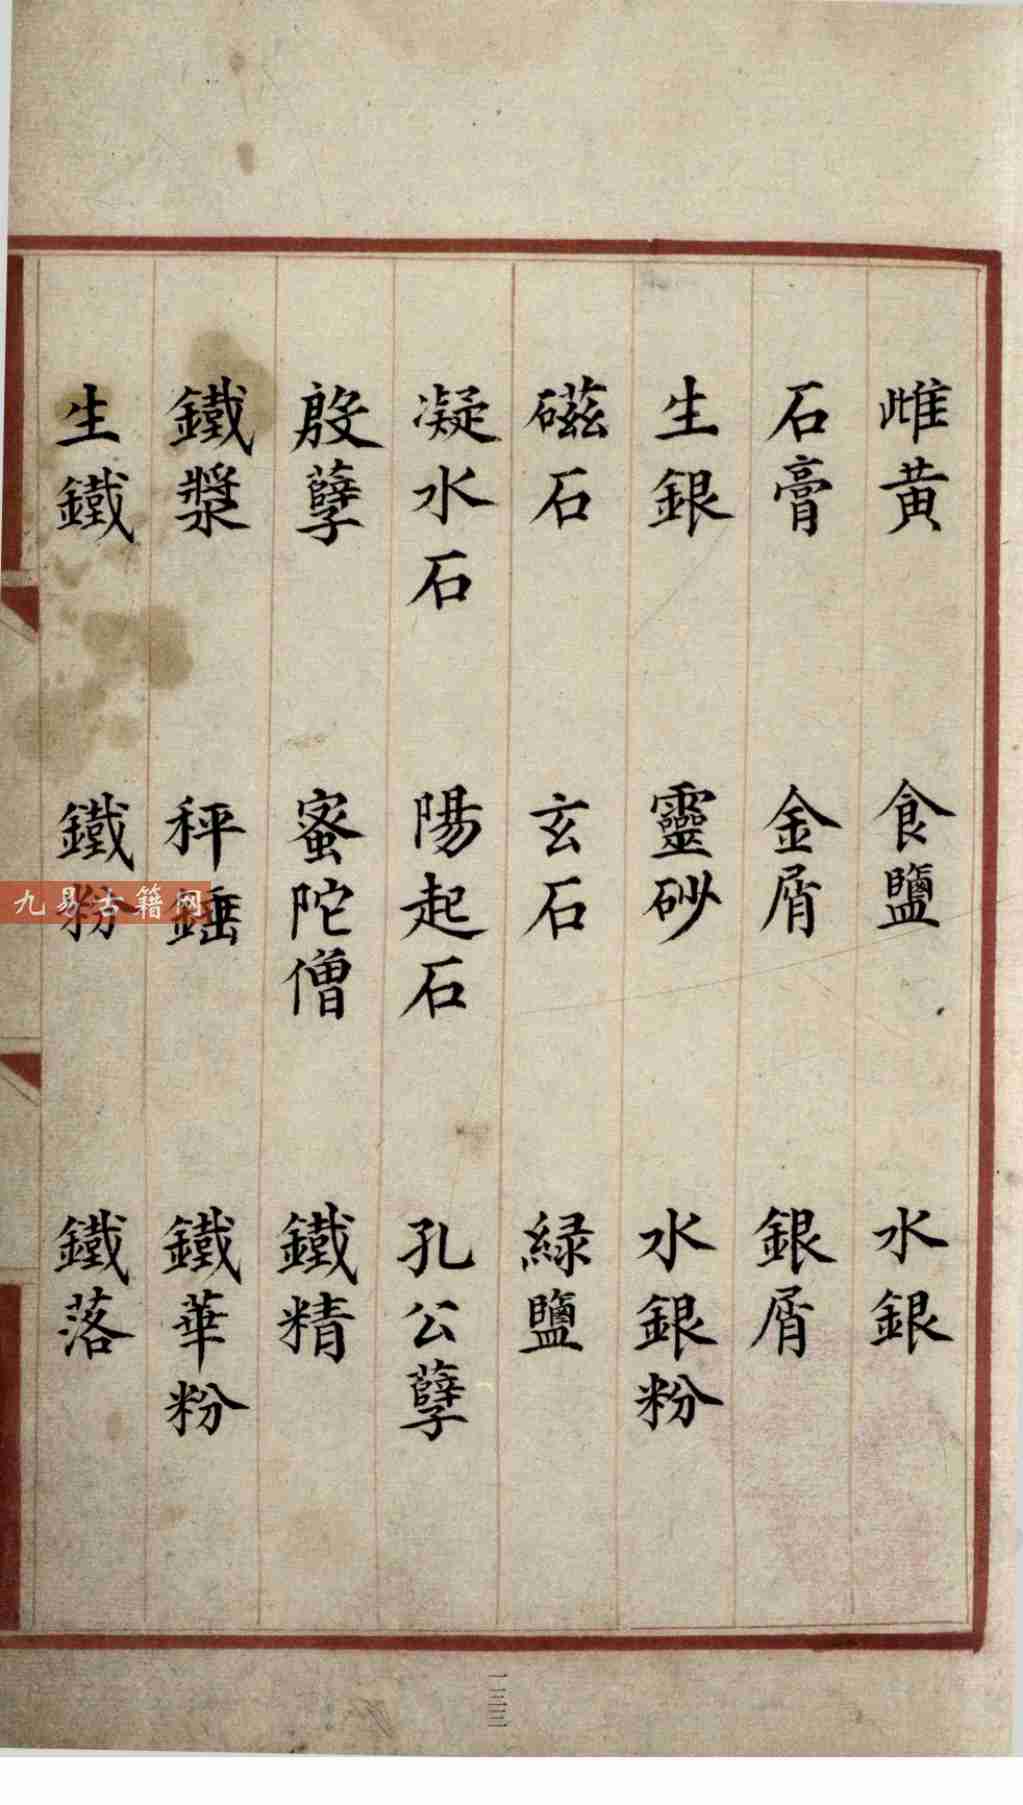 雌黄 食鹽 水銀
石膏 金屑 銀屑
生銀 靈砂 水銀粉
磁石 玄石 緑鹽
凝水石 陽起石 孔公孽
殷孽 蜜陀僧 鐵精
鐵漿 秤錘 鐵華粉
生鐵 鐵粉 鐵落
九易古籍网